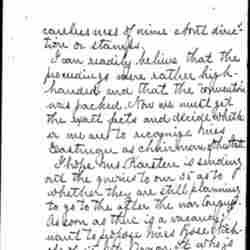 carelessness of mine about direc-
tion or stamps.
I can readily believe that the
proceedings were rather high-
handed and that the convention
was packed. Now we must get
the exact facts and decide wheth
er we are to recognize Miss
as chairman of the State
I hope Mrs Karsten is sending
out the queries to our 35 as to
whether they are still planning
to go to the after the war Congress
As soon as there is a vacancy I
want to propose Miss